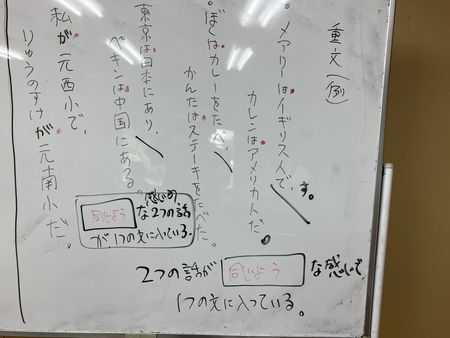 重文(例)
メアリーはイギリス人で、
カレンはアメリカ人だ。
す。
ぼくはカレーをたべ、
かんたはステーキをたべた。
東京は日本にあり、
ペキンは中国にある。
私が元西小で、
りゅうのすけが元南小だ。
(感じの)
同じような2つの話
が1つの文に入っている。
2つの話が同じような感じで
1つの文に入っている。